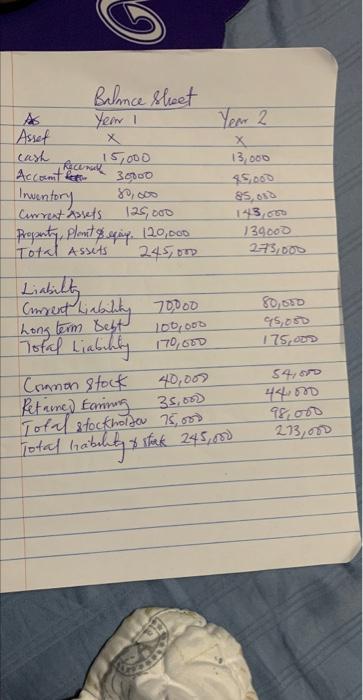 Balance Sheet
As Year 1 Year 2
Asset X X
cash 15,000 13,000
Account Receivab 30000 45,000
Inventory 80,000 85,000
Current Assets 125,000 143,000
Property, Plant & equip. 120,000 130000
Total Assets 245,000 273,000
Liability
Current Liability 70000 80,000
Long term Debt 100,000 95,000
Total Liability 170,000 175,000
Common Stock 40,000 54,000
Retained Earning 35,000 44,000
Total stockholder 75,000 98,000
Total liability & stock 245,000 273,000